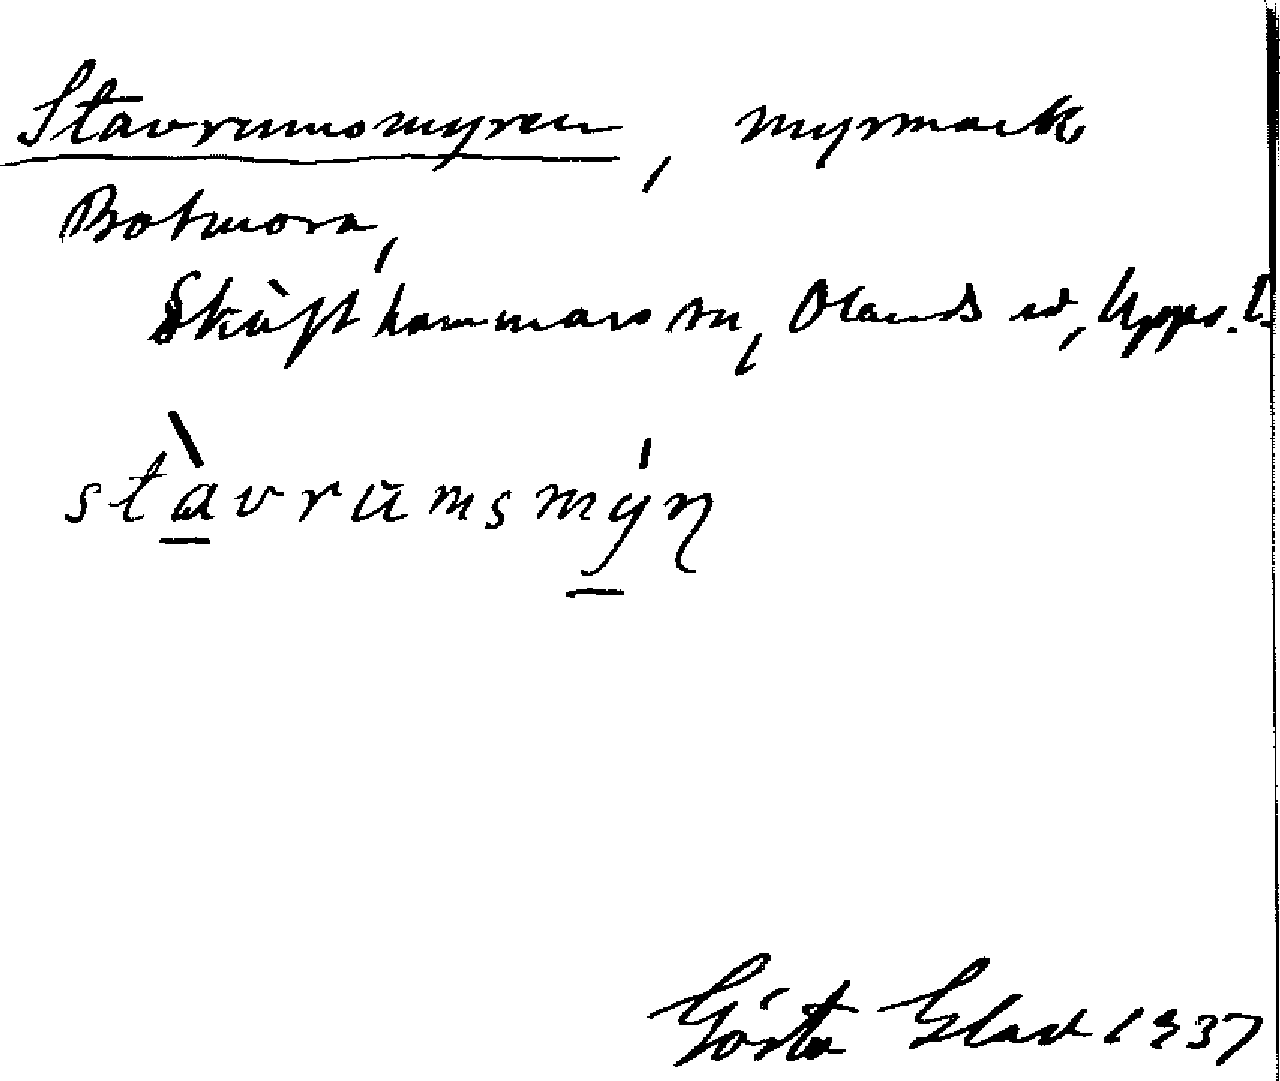 Stavrumsmyren, myrmark
Botmora,
Skäfthammars sn, Olands hd, Upps. l.
stàvrumsmýn
Gösta Glad 1937